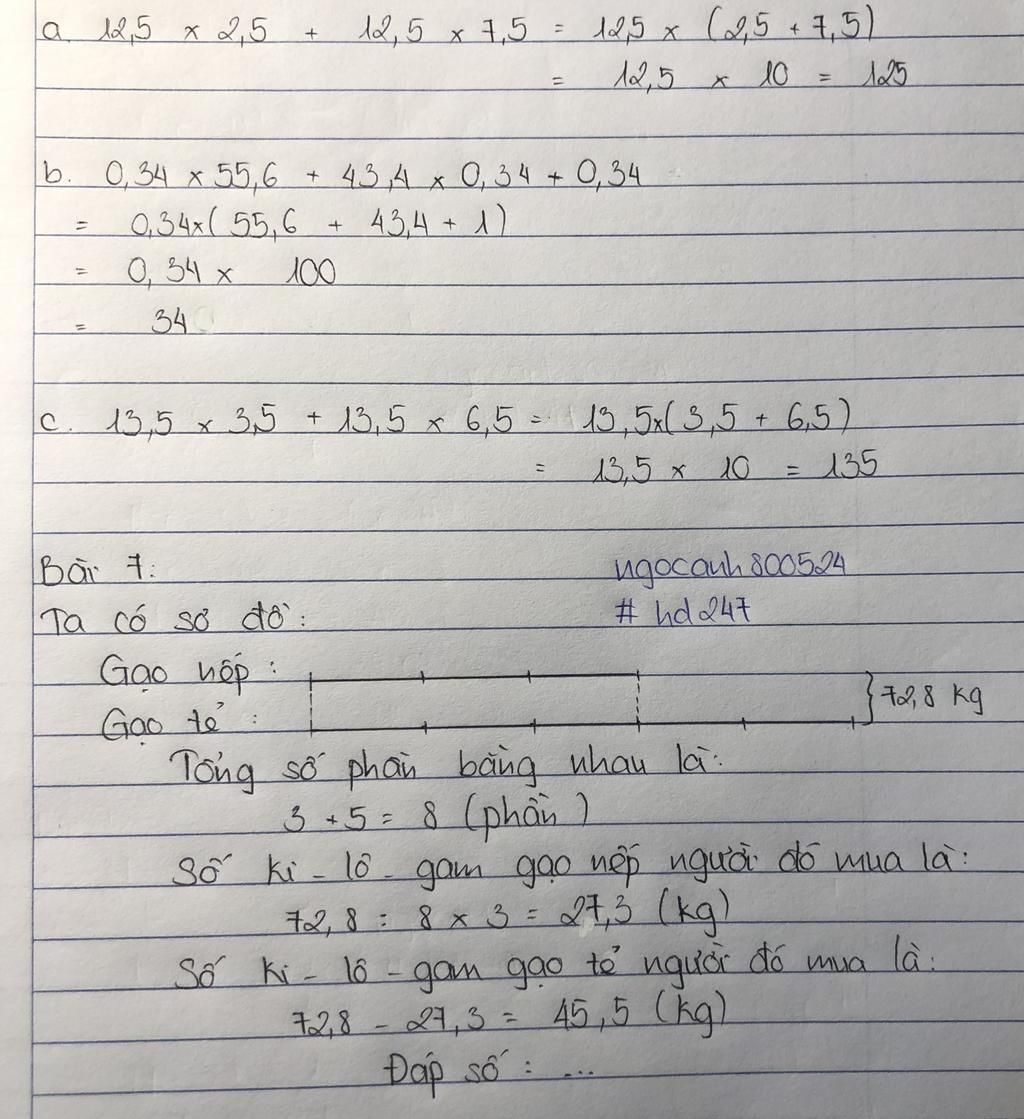 a. 12,5 × 2,5 + 12,5 × 7,5 = 12,5 × (2,5 + 7,5)
= 12,5 × 10 = 125
b. 0,34 × 55,6 + 43,4 × 0,34 + 0,34
= 0,34×(55,6 + 43,4 + 1)
= 0,34 × 100
= 34
c. 13,5 × 3,5 + 13,5 × 6,5 = 13,5×(3,5 + 6,5)
= 13,5 × 10 = 135
Bài 7: ngocanh800524
Ta có sơ đồ: # hd247
Gạo nếp :
72,8 kg
Gạo tẻ :
Tổng số phần bằng nhau là:
3 + 5 = 8 (phần)
Số ki-lô-gam gạo nếp người đó mua là:
72,8 : 8 × 3 = 27,3 (kg)
Số ki-lô-gam gạo tẻ người đó mua là:
72,8 - 27,3 = 45,5 (kg)
Đáp số : ...